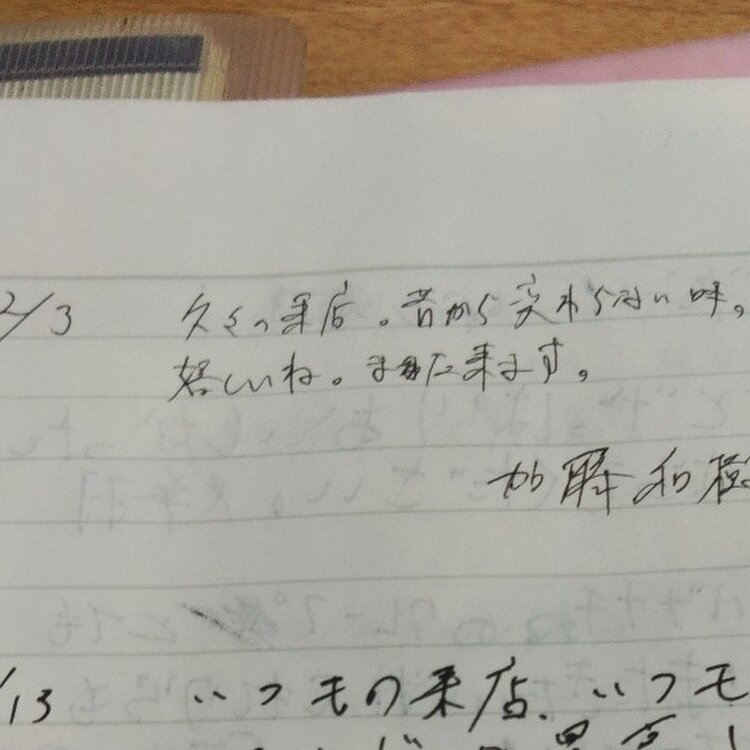 2/3 久々の来店。昔から変わらない味。
嬉しいね。また来ます。
加藤和樹
/13 いつもの来店、いつも